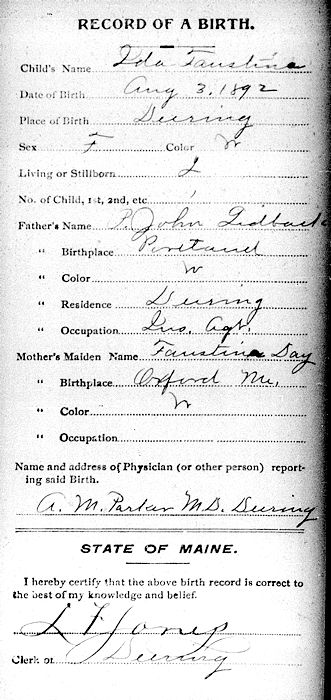 RECORD OF A BIRTH.
Child's Name Ida Faustina
Date of Birth Aug 3, 1892
Place of Birth Deering
Sex F Color W
Living or Stillborn L
No. of Child, 1st, 2nd, etc. 1
Father's Name P. John
" Birthplace Portland
" Color W
" Residence Deering
" Occupation Ins. Agt.
Mother's Maiden Name Faustina Day
" Birthplace Oxford Me.
" Color W
" Occupation
Name and address of Physician (or other person) report-
ing said Birth.
A. M. Parker M.D. Deering
STATE OF MAINE.
I hereby certify that the above birth record is correct to
the best of my knowledge and belief.
L F Jones
Clerk of Deering